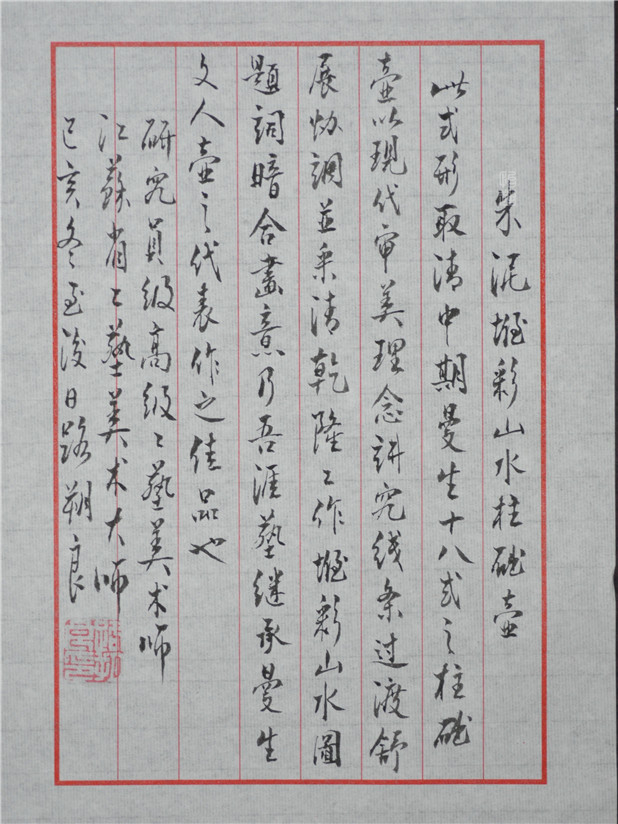 朱泥堆彩山水柱础壶
此式形取清中期曼生十八式之柱础
壶以现代审美理念讲究线条过渡舒
展劲调並乘清乾隆工作堆彩山水圖
題詞暗合畫意乃吾涯藝继承曼生
文人壶之代表作之佳品也
研究員级高级工藝美术师
江蘇省工藝美术大师
己亥冬至後日路朔良